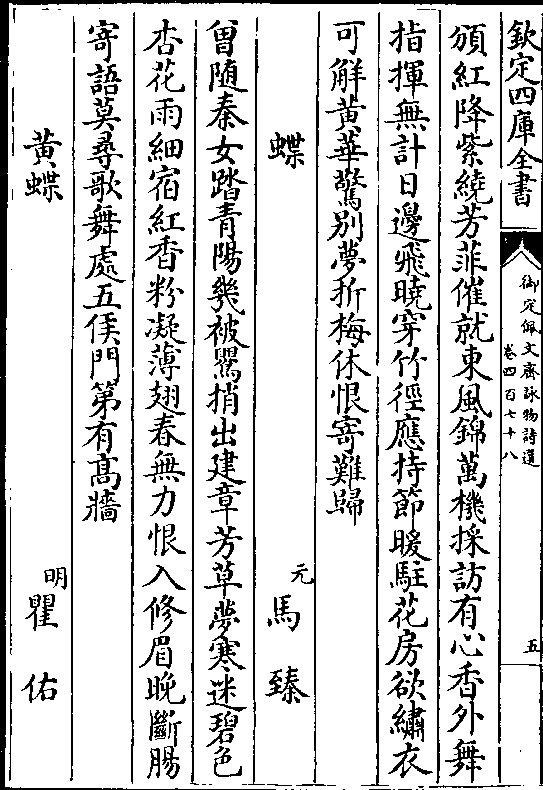 欽定四庫全書
御定佩文齋詠物詩選
卷四百七十八
五
頒紅降紫繞芳菲催就東風錦萬機採訪有心香外舞
指揮無計日邊飛曉穿竹徑應持節暖駐花房欲繡衣
可解黃華驚別夢折梅休恨寄難歸
蝶 元 馬臻
曾隨秦女踏青陽幾被罵捎出建章芳草夢寒迷碧色
杏花雨細宿紅香粉凝薄翅春無力恨入修眉晚斷腸
寄語莫尋歌舞處五侯門第有高牆
黃蝶 明 瞿佑